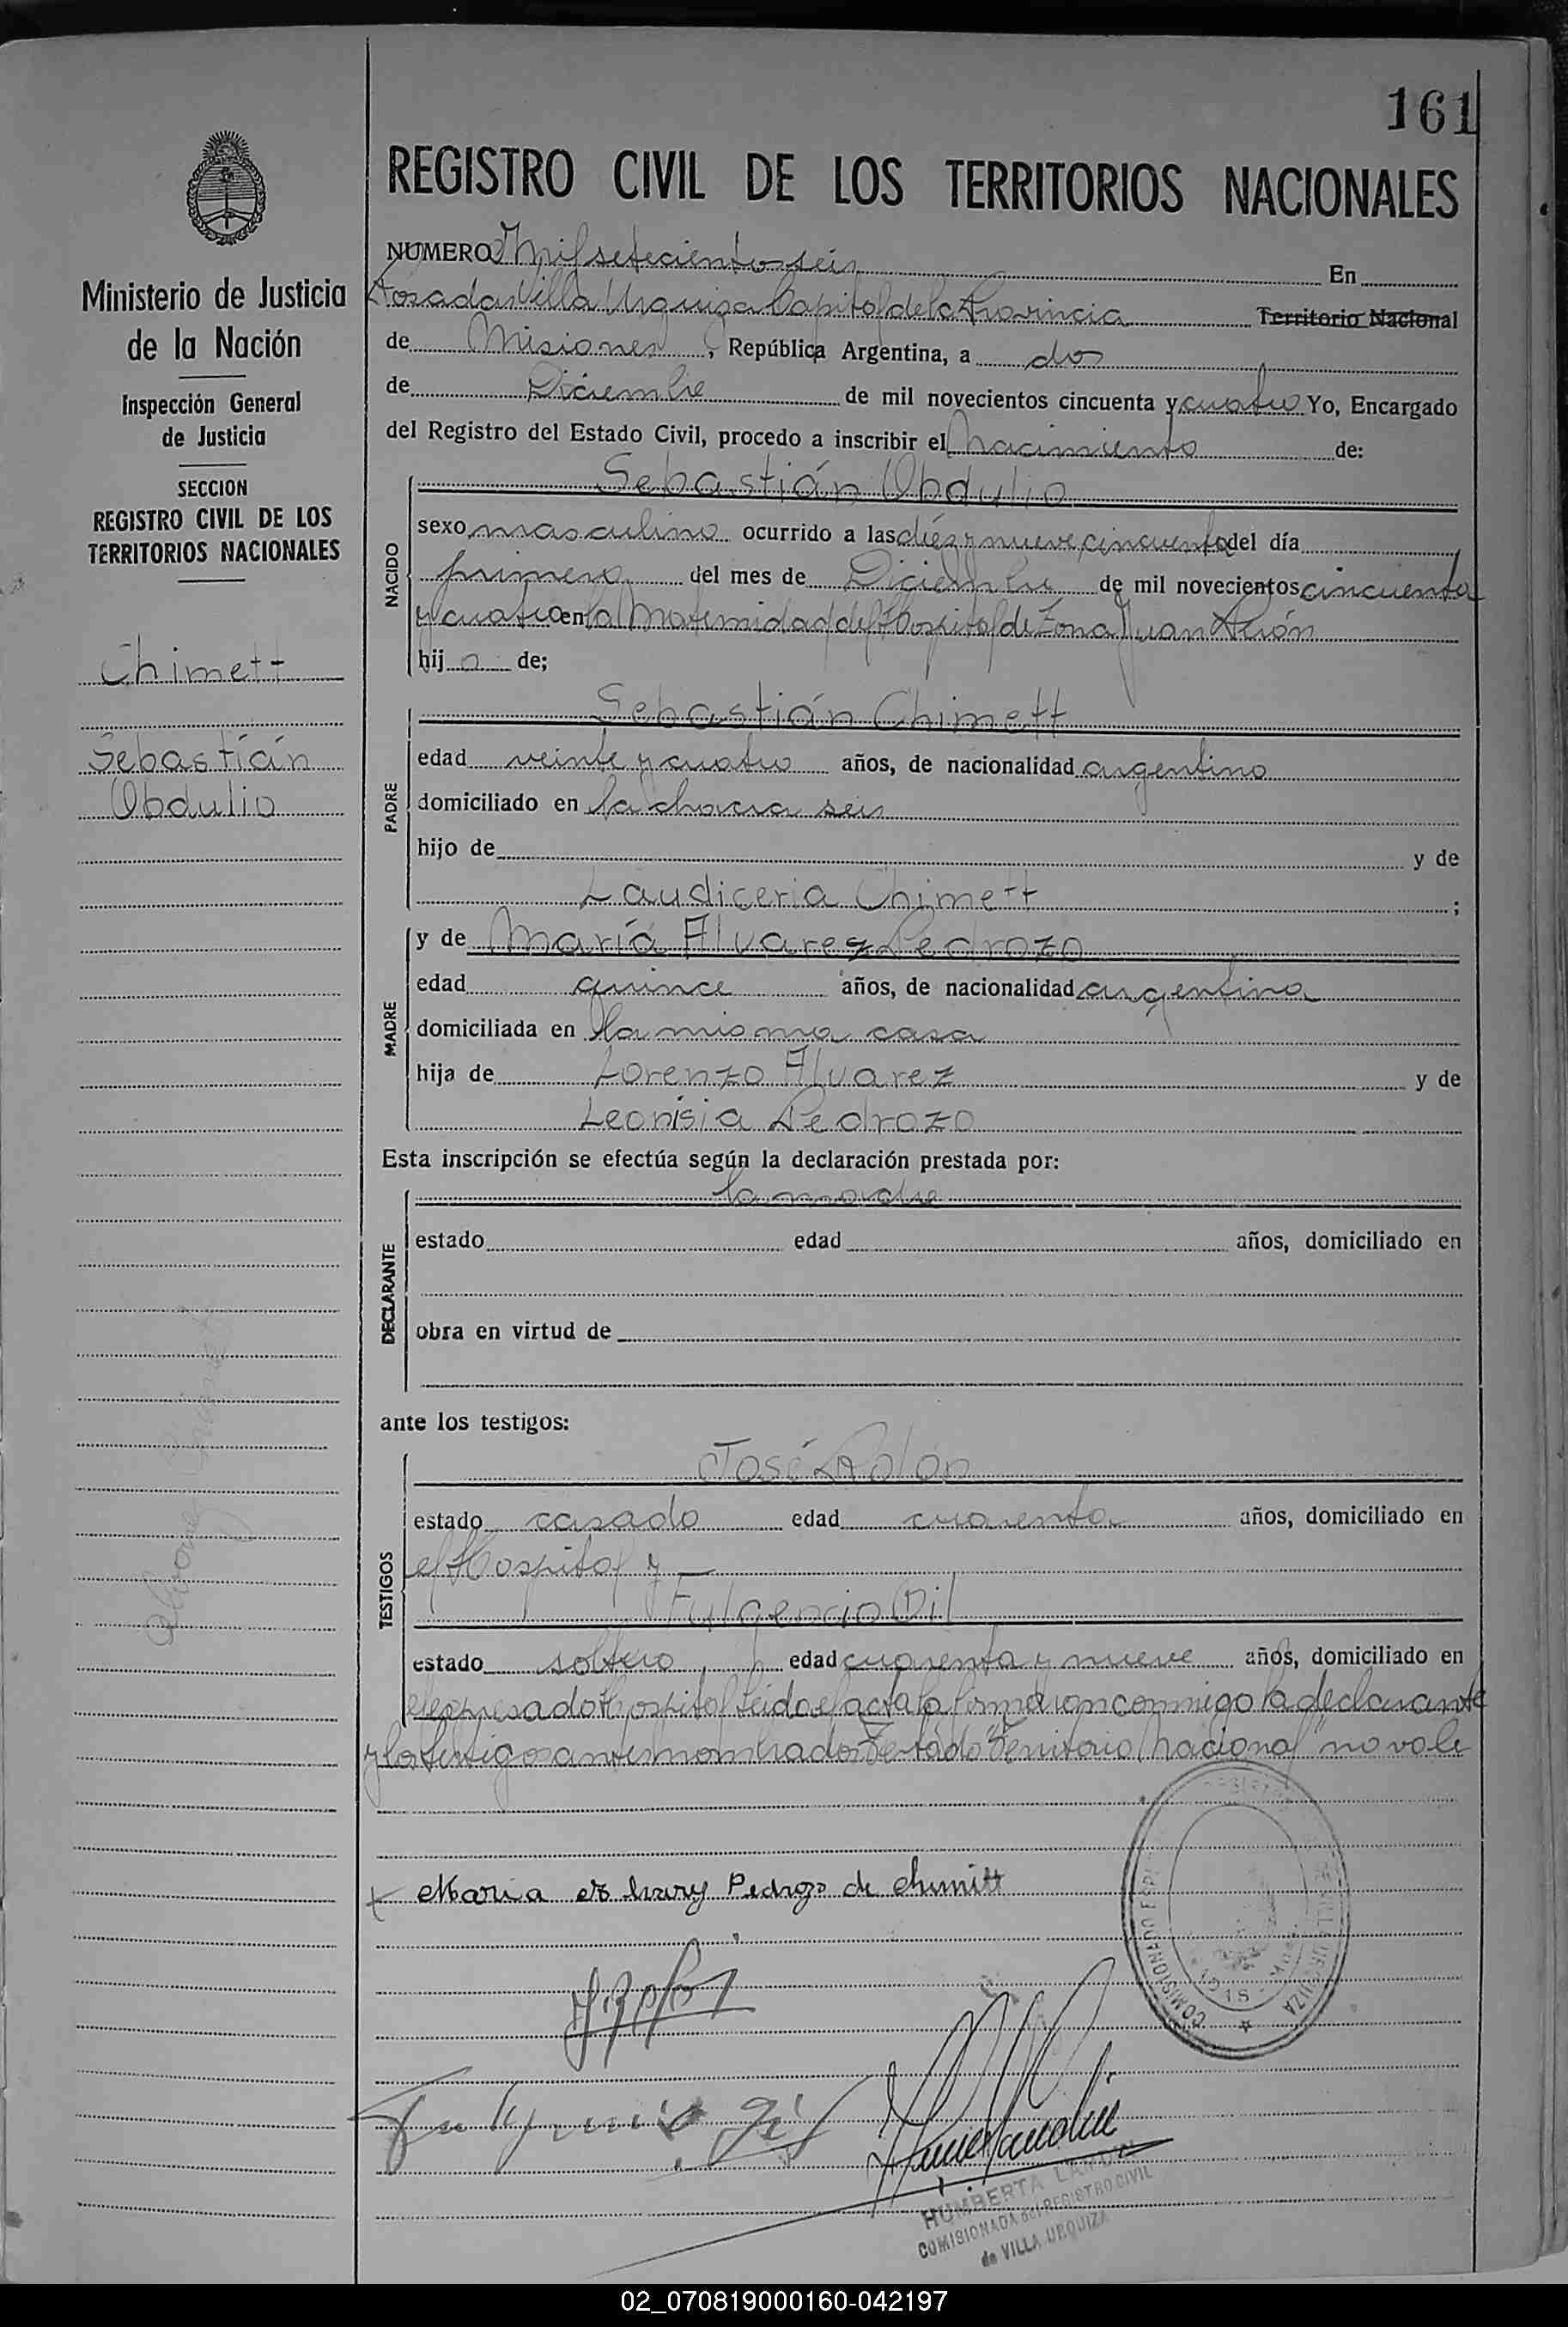 161
REGISTRO CIVIL DE LOS TERRITORIOS NACIONALES
Ministerio de Justicia
de la Nación
Inspección General
de Justicia
SECCION
REGISTRO CIVIL DE LOS
TERRITORIOS NACIONALES
Chimett
Sebastián
Obdulio
NUMERO Mil setecientos seis En
Posadas Villa Urquiza Capital de la Provincia Territorio Nacional
de Misiones, República Argentina, a dos
de Diciembre de mil novecientos cincuenta y cuatro Yo, Encargado
del Registro del Estado Civil, procedo a inscribir el Nacimiento de:
Sebastián Obdulio
NACIDO
sexo masculino ocurrido a las diéz y nueve, cincuenta del día
primero del mes de Diciembre de mil novecientos cincuenta
y cuatro en la Maternidad del Hospital de Zona Juan Perón
hijo de;
Sebastián Chimett
PADRE
edad veinte y cuatro años, de nacionalidad argentino
domiciliado en la chacra seis
hijo de y de
Laudiceria Chimett ;
MADRE
y de María Alvarez Pedrozo
edad quince años, de nacionalidad argentina
domiciliada en la misma casa
hija de Lorenzo Alvarez y de
Leonisia Pedrozo
Esta inscripción se efectúa según la declaración prestada por:
la madre
DECLARANTE
estado edad años, domiciliado en
obra en virtud de
ante los testigos:
José Rolón
TESTIGOS
estado casado edad cuarenta años, domiciliado en
el Hospital y
Fulgencio Gil
estado soltero, edad cuarenta y nueve años, domiciliado en
el expresado Hospital Leida el acta la firmaron conmigo la declarante
y los testigos antes nombrados Testado "Territorio Nacional" no vale
Maria Pedrozo de Chimitt
COMISIONADO
URQUIZA
HUMBERTA
COMISIONADA del REGISTRO CIVIL
de VILLA URQUIZA
02_070819000160-042197